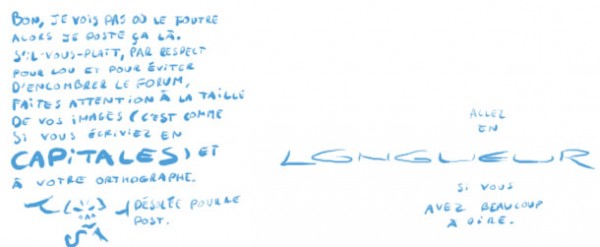 BON, JE VOIS PAS OÙ LE FOUTRE
ALORS JE POSTE ÇA LÀ.
S'IL-VOUS-PLAIT, PAR RESPECT
POUR LOU ET POUR ÉVITER
D'ENCOMBRER LE FORUM,
FAITES ATTENTION À LA TAILLE
DE VOS IMAGES (C'EST COMME
SI VOUS ÉCRIVIEZ EN
CAPITALES) ET
À VOTRE ORTHOGRAPHE.
DÉSOLÉE POUR LE
POST.
ALLEZ
EN
LONGUEUR
SI VOUS
AVEZ BEAUCOUP
À DIRE.